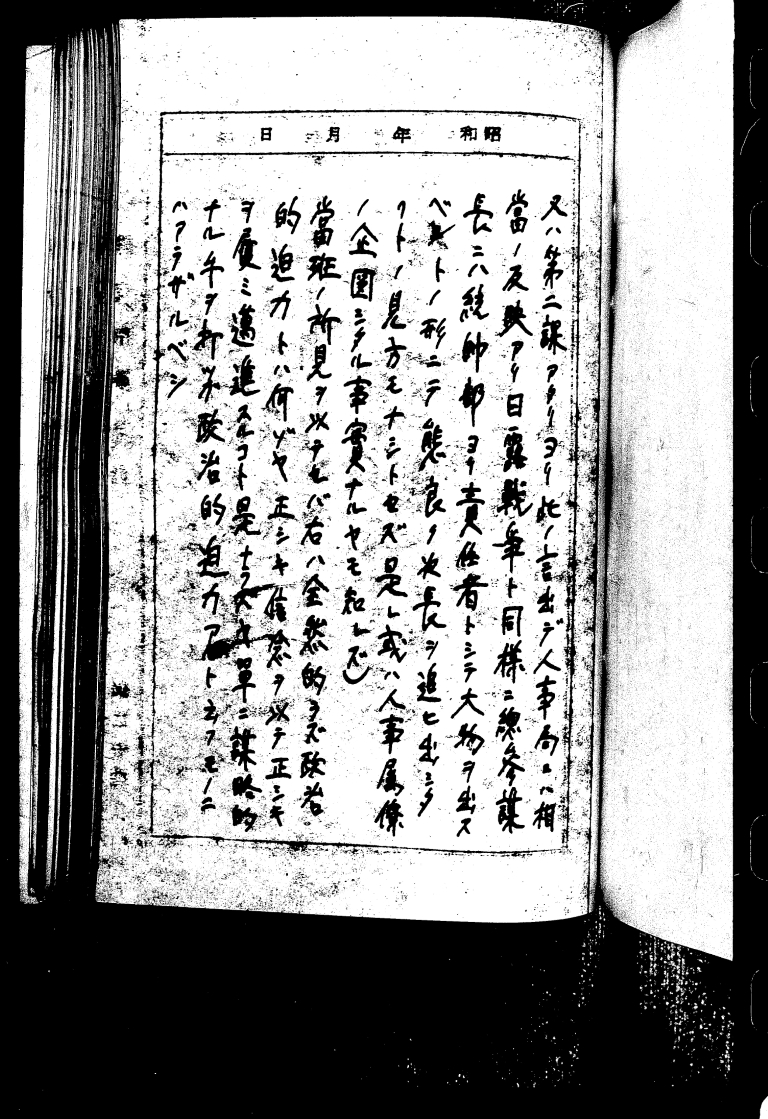 昭和 年 月 日
又ハ第二課アタリヨリ此ノ言出デ人事局ニハ相
當ノ反映アリ日露戰争ト同様ニ總参謀
長ニハ統帥部ヨリ責任者トシテ大物ヲ出ス
ベシトノ形ニテ態良ク次長ヲ追ヒ出シタ
リトノ見方モナシトセズ是レ或ハ人事属僚
ノ企圖シタル事實ナルヤモ知レズ)
當班ノ所見ヲ以テセバ右ハ全然的ヲズ政治
的迫力トハ何ゾヤ正シキ信念ヲ以テ正シキ
ヲ履ミ邁進スルコト是ナラズヤ單ニ謀略的
ナル手ヲ打ツガ政治的迫力 ト云フモノニ
ハアラザルベシ